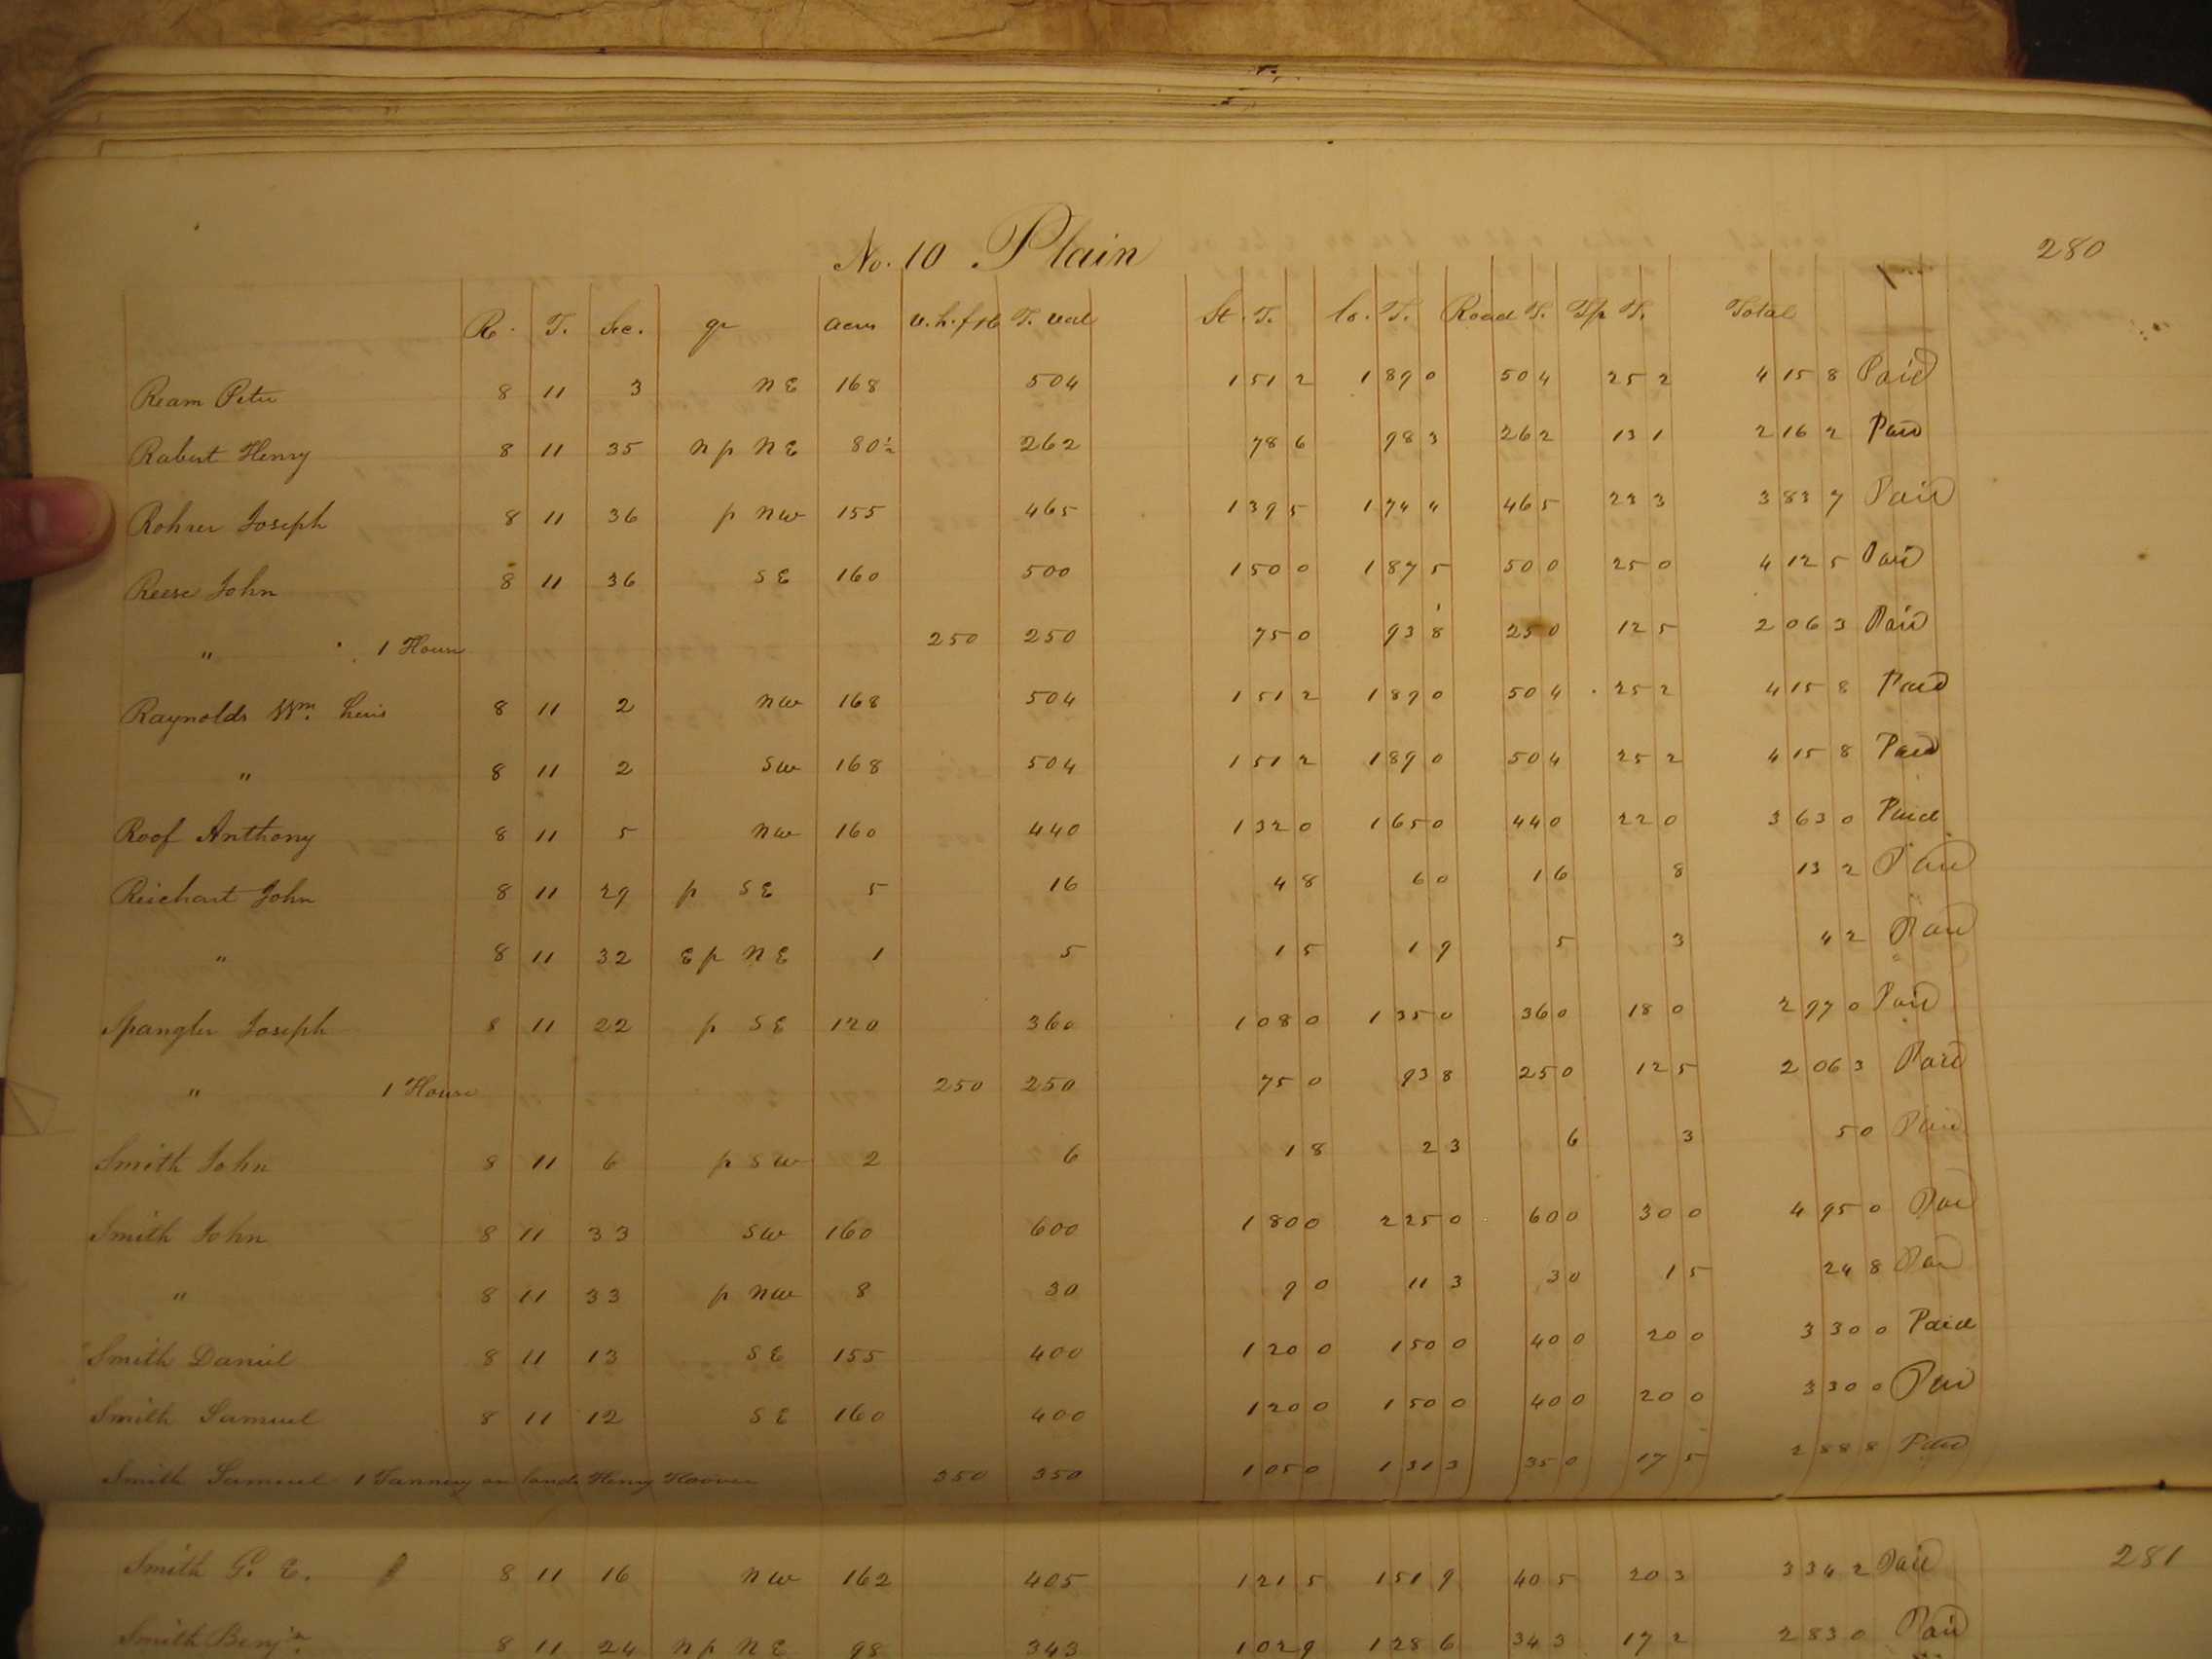 No. 10 Plain 280
R. T. Sec. qr acrs v. h. f 16 T. val St. T. Co. T. Road T. Tp T. Total
Ream Peter 8 11 3 N E 168 504 1 51 2 1 89 0 50 4 25 2 4 15 8 Paid
Rabert Henry 8 11 35 N p N E 80½ 262 78 6 98 3 26 2 13 1 2 16 2 Paid
Rohrer Joseph 8 11 36 p NW 155 465 1 39 5 1 74 4 46 5 23 3 3 83 7 Paid
Reese John 8 11 36 S E 160 500 1 50 0 1 87 5 50 0 25 0 4 12 5 Paid
" 1 House 250 250 75 0 93 8 25 0 12 5 2 06 3 Paid
Raynolds Wm. heirs 8 11 2 NW 168 504 1 51 2 1 89 0 50 4 25 2 4 15 8 Paid
" 8 11 2 SW 168 504 1 51 2 1 89 0 50 4 25 2 4 15 8 Paid
Roof Anthony 8 11 5 NW 160 440 1 32 0 1 65 0 44 0 22 0 3 63 0 Paid
Reichart John 8 11 29 p S E 5 16 4 8 6 0 1 6 8 13 2 Paid
" 8 11 32 E p N E 1 5 1 5 1 9 5 3 4 2 Paid
Spangler Joseph 8 11 22 p S E 120 360 1 08 0 1 35 0 36 0 18 0 2 97 0 Paid
" 1 House 250 250 75 0 93 8 25 0 12 5 2 06 3 Paid
Smith John 8 11 6 p SW 2 6 1 8 2 3 6 3 5 0 Paid
Smith John 8 11 33 SW 160 600 1 80 0 2 25 0 60 0 30 0 4 95 0 Paid
" 8 11 33 p NW 8 30 9 0 11 3 3 0 1 5 24 8 Paid
Smith Daniel 8 11 13 S E 155 400 1 20 0 1 50 0 40 0 20 0 3 30 0 Paid
Smith Samuel 8 11 12 S E 160 400 1 20 0 1 50 0 40 0 20 0 3 30 0 Paid
Smith Samuel 1 Tannery on lands Henry Hoover 350 350 1 05 0 1 31 3 35 0 17 5 2 88 8 Paid
Smith G. E. 8 11 16 NW 162 405 1 21 5 1 51 9 40 5 20 3 3 34 2 Paid 281
Smith Benjn. 8 11 24 N p N E 98 343 1 02 9 1 28 6 34 3 17 2 2 83 0 Paid